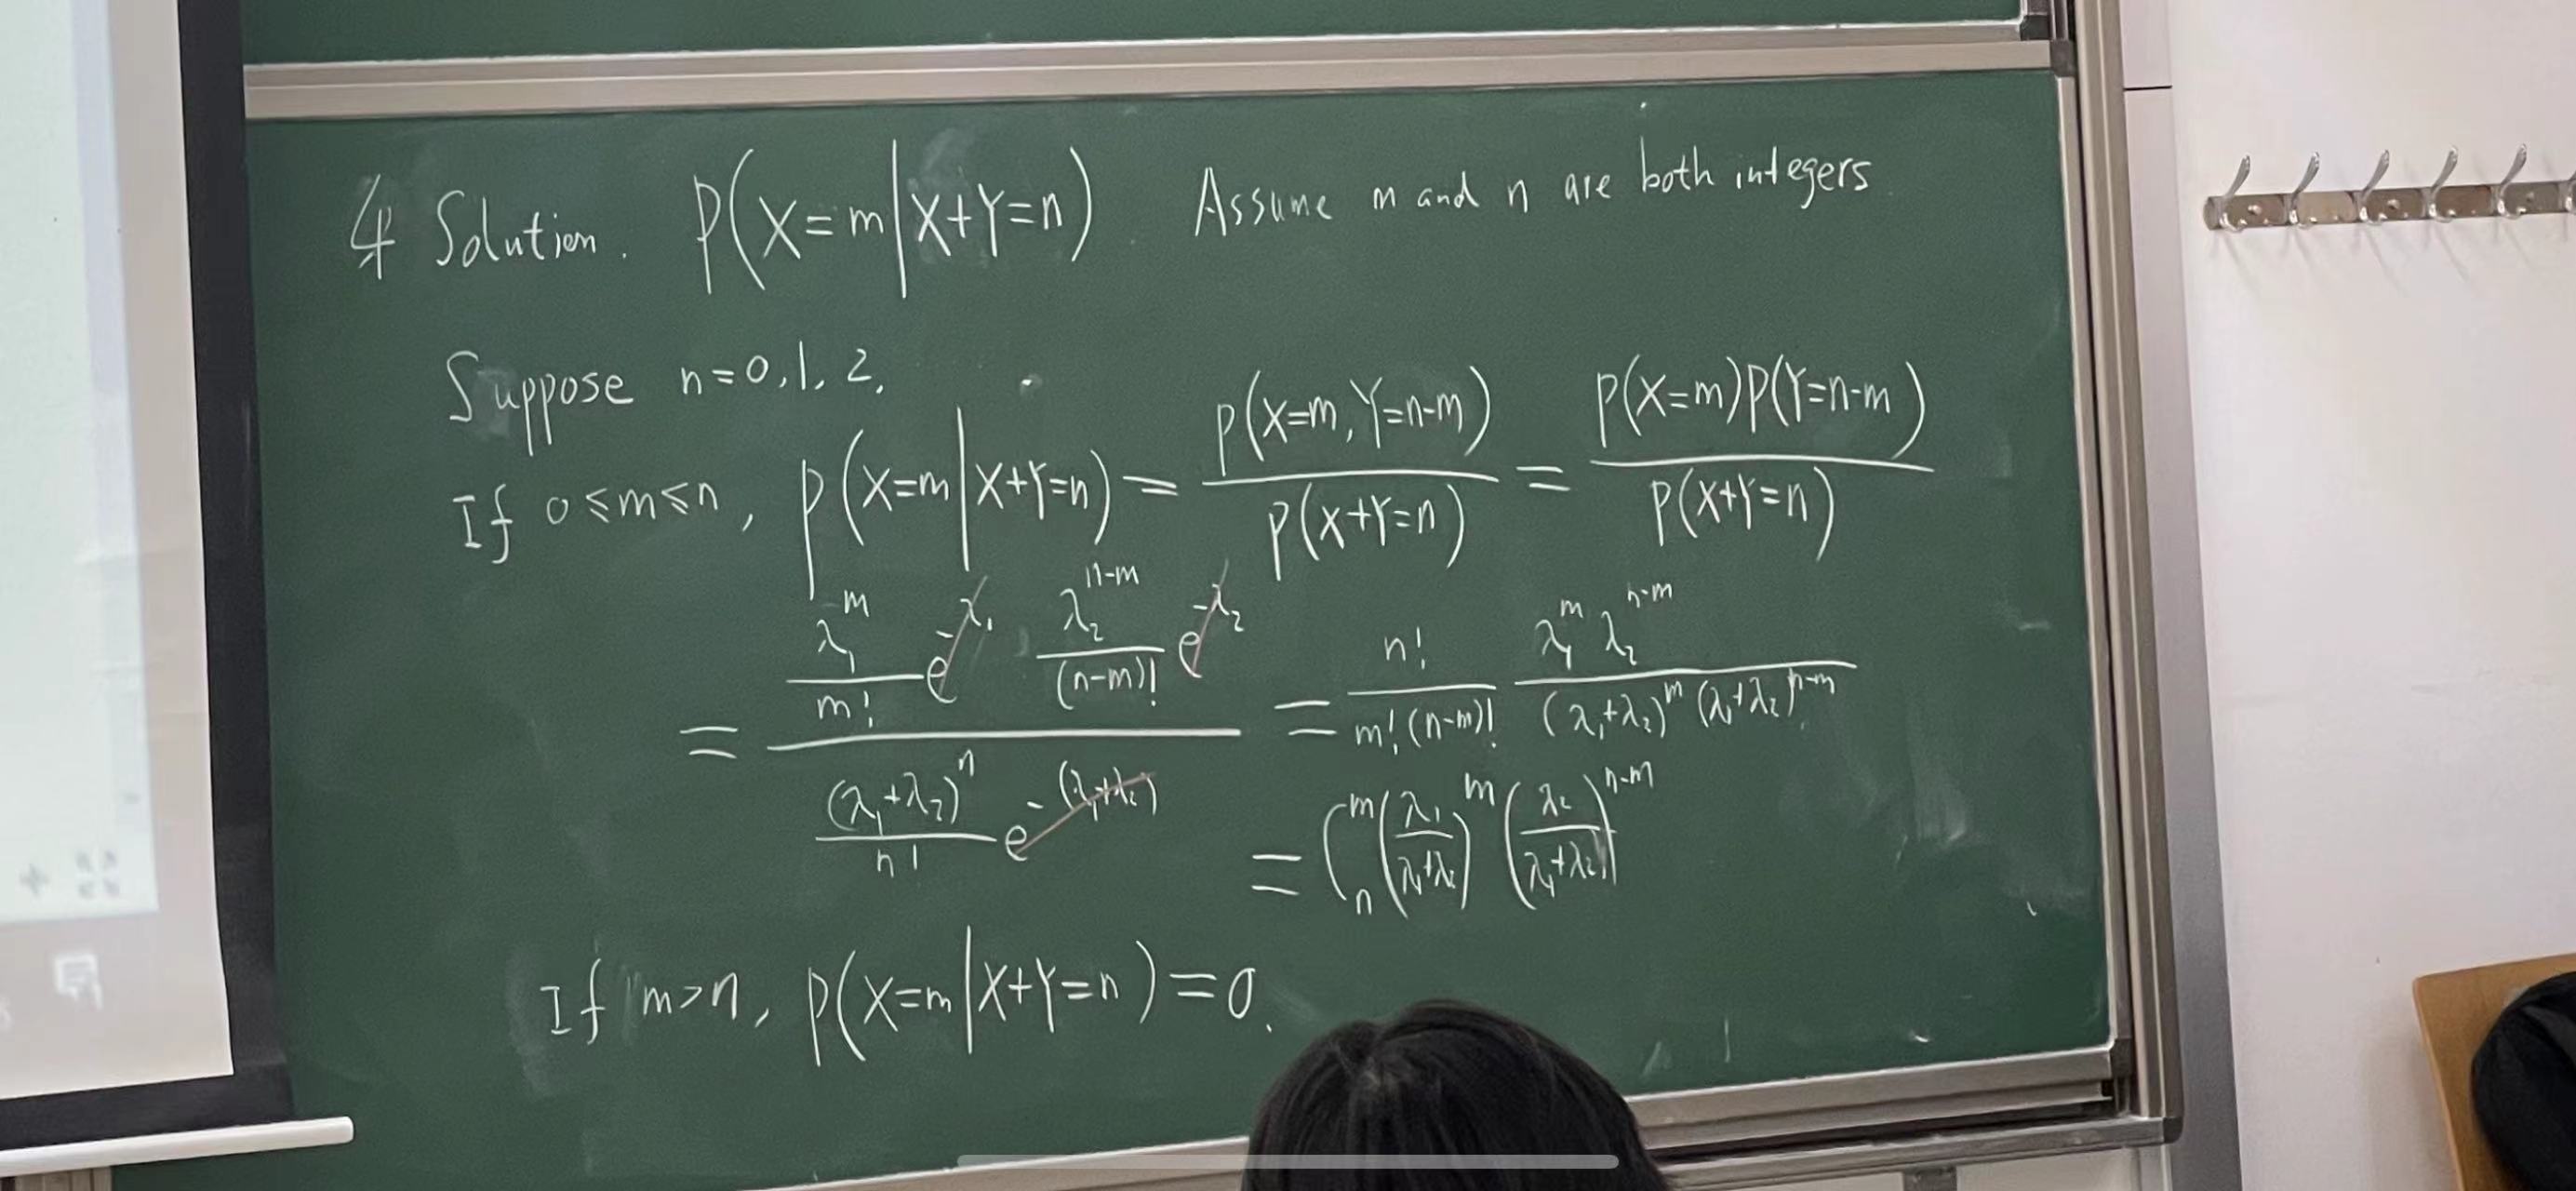 4 Solution. P(X=m|X+Y=n). Assume m and n are both integers
Suppose n=0,1,2,
If 0≤m≤n, P(X=m|X+Y=n) = P(X=m,Y=n-m)/P(X+Y=n) = P(X=m)P(Y=n-m)/P(X+Y=n)
= (λ₁^m/m! e^(-λ₁) · λ₂^(n-m)/(n-m)! e^(-λ₂))/((λ₁+λ₂)^n/n! e^(-(λ₁+λ₂))) = n!/(m!(n-m)!) λ₁^m λ₂^(n-m)/((λ₁+λ₂)^m (λ₁+λ₂)^(n-m))
= C_n^m (λ₁/(λ₁+λ₂))^m (λ₂/(λ₁+λ₂))^(n-m)
If m>n, P(X=m|X+Y=n)=0.